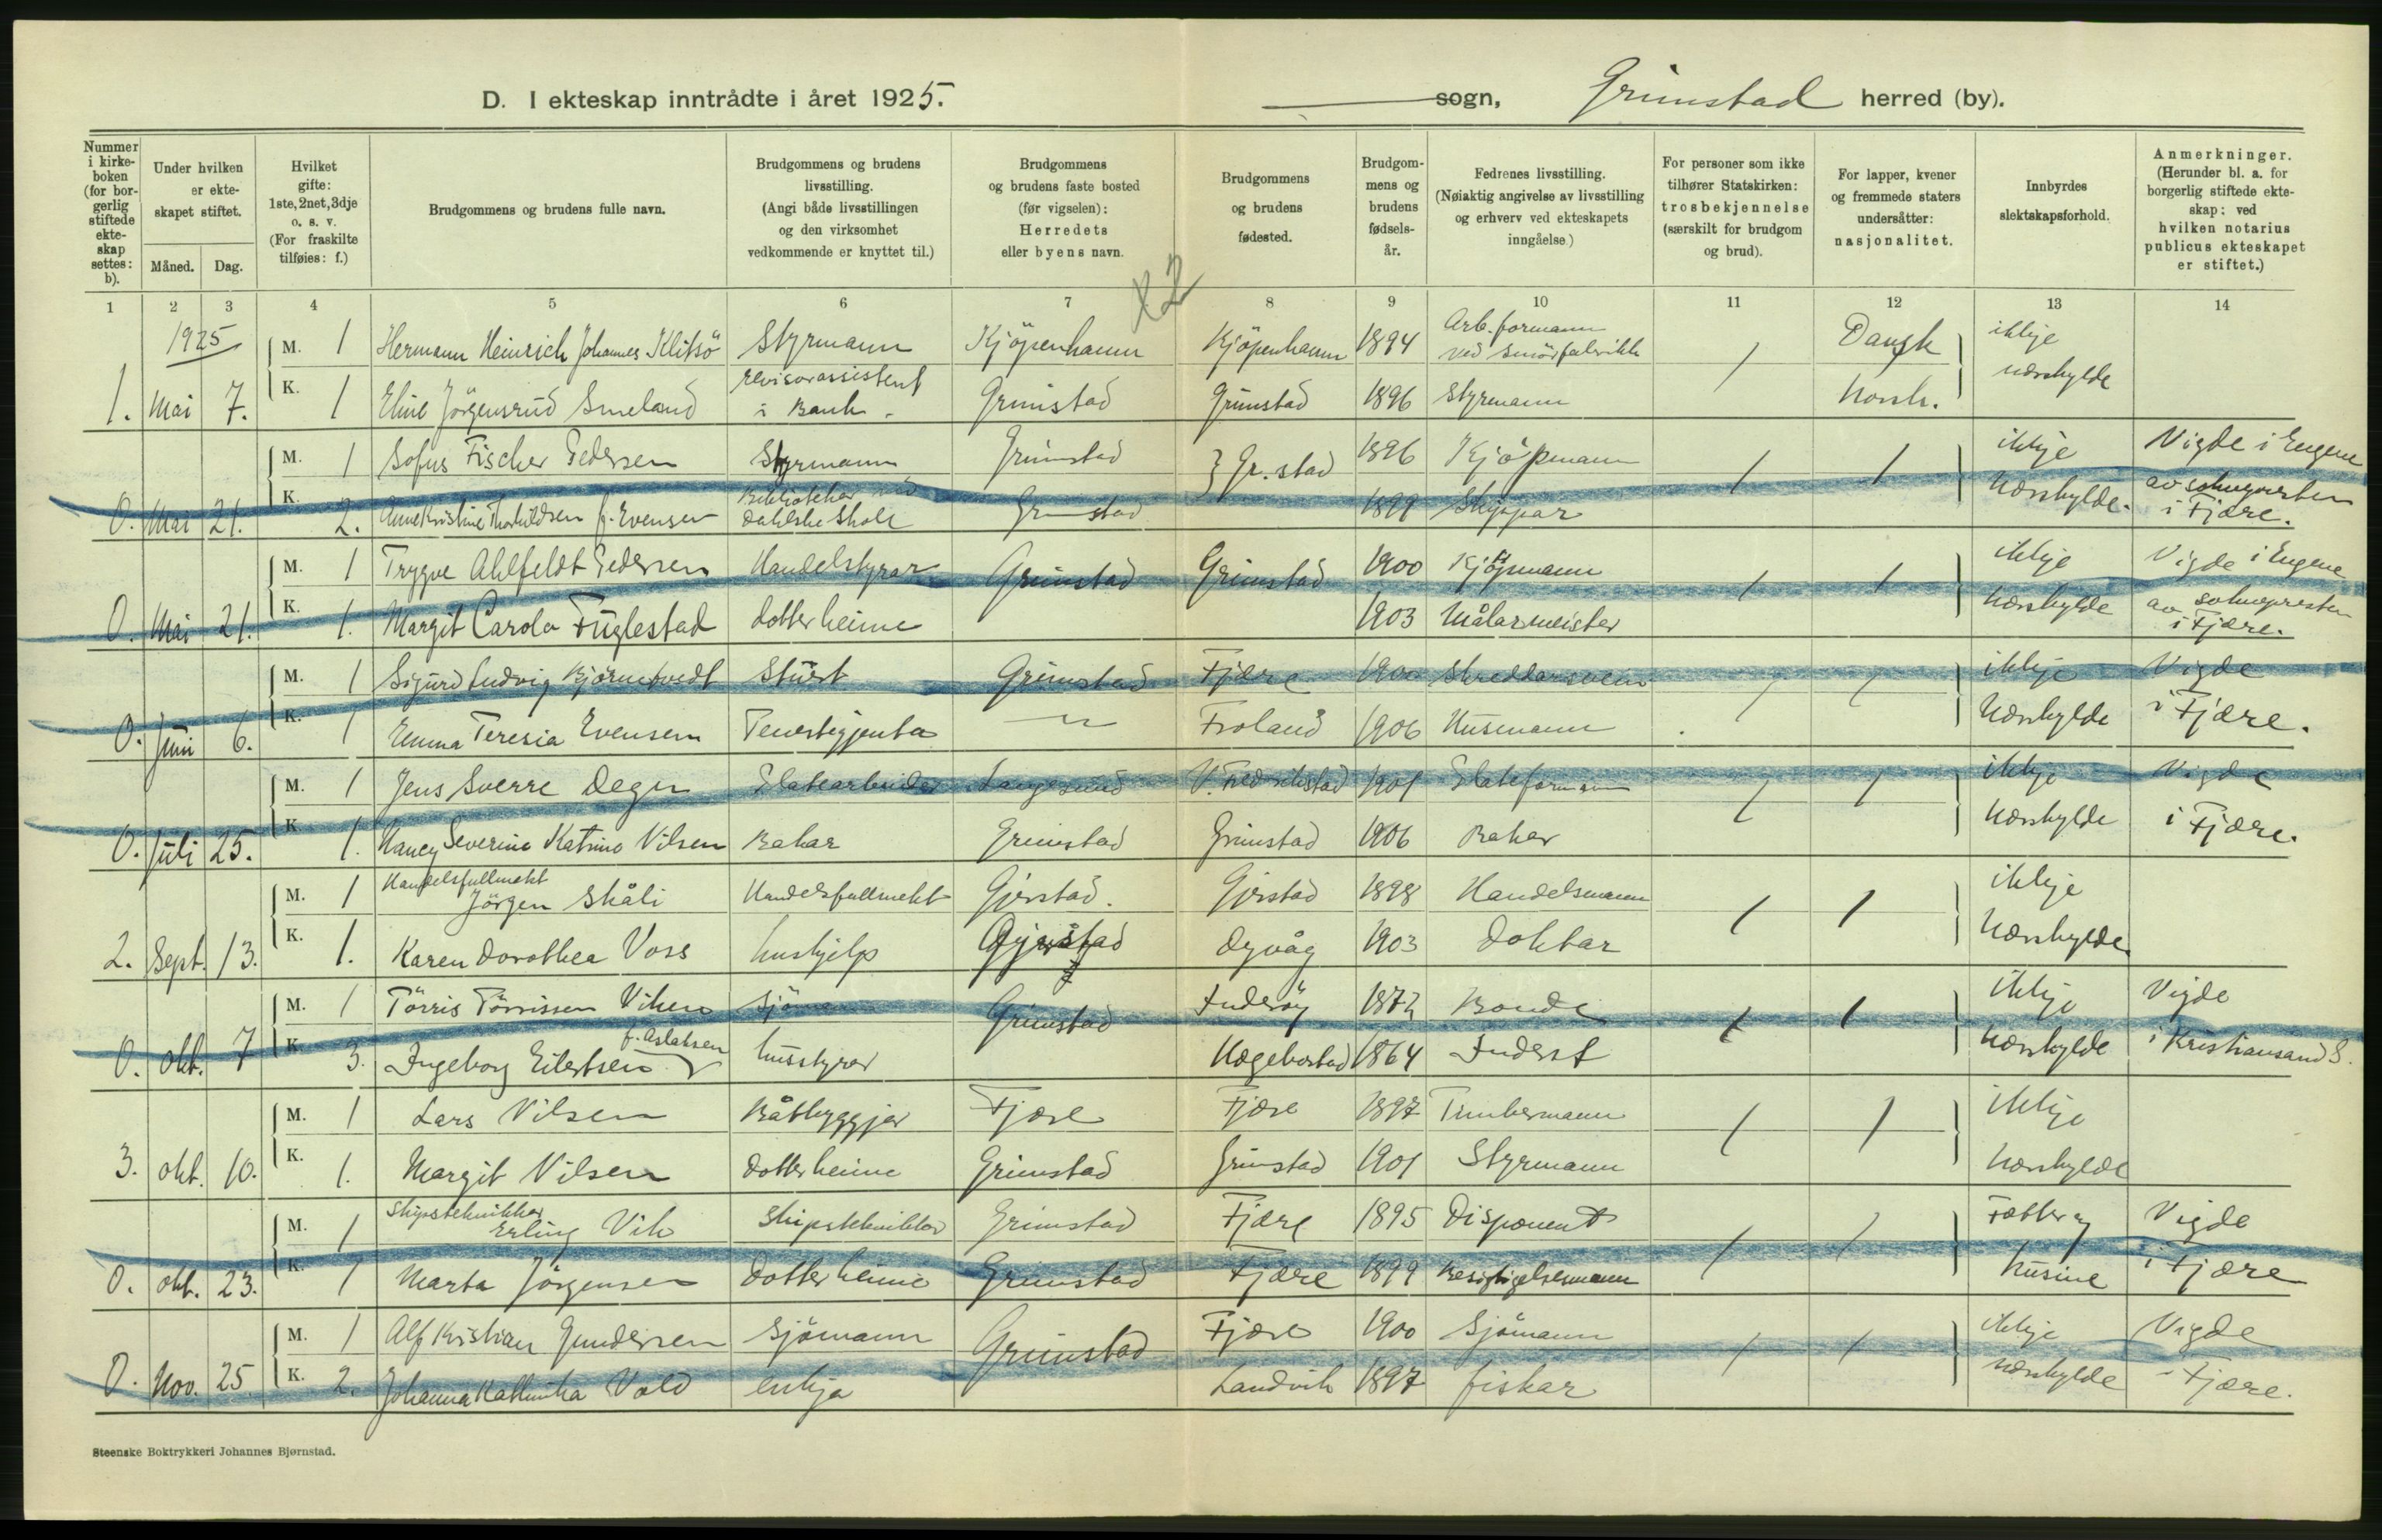 D. I ekteskap inntrådte i året 1925.
sogn, Grimstad herred (by).
Nummer i kirke-boken (for bor-gerlig stiftede ekte-skap settes: b).
Under hvilken er ekte-skapet stiftet.
Måned. Dag.
Hvilket gifte: 1ste, 2net, 3dje o. s. v. (For fraskilte tilføies: f.)
Brudgommens og brudens fulle navn.
Brudgommens og brudens livsstilling. (Angi både livsstillingen og den virksomhet vedkommende er knyttet til.)
Brudgommens og brudens faste bosted (før vigselen): Herredets eller byens navn.
Brudgommens og brudens fødested.
Brudgom-mens og brudens fødsels-år.
Fedrenes livsstilling. (Nøiaktig angivelse av livsstilling og erhverv ved ekteskapets inngåelse.)
For personer som ikke tilhører Statskirken: trosbekjennelse (særskilt for brudgom og brud).
For lapper, kvener og fremmede staters undersåtter: nasjonalitet.
Innbyrdes slektskapsforhold.
Anmerkninger. (Herunder bl. a. for borgerlig stiftede ekte-skap: ved hvilken notarius publicus ekteskapet er stiftet.)
x2
1 2 3 4 5 6 7 8 9 10 11 12 13 14
1925
M. 1 Hermann Heinrich Johannes Klitsö Styrmann Kjöpenhamn Kjöpenhamn 1894 Arb. formann ved smörfabrikk / Dansk ikkje
1. Mai 7. K. 1 Eline Jörgensrud Smeland revisorassistent i Bank. Grimstad Grimstad 1896 Styrmann Norsk. nærskylde
M. 1 Sofus Fischer Pedersen Styrmann Grimstad } Gr.stad 1896 Kjöpmann / / ikkje Vigde i Eugene
0. Mai 21. K. 2. Anne Kristine Thorkildsen f. Evensen Bibliotekar ved Dahlske Skole Grimstad 1899 Skippar nærskylde. av soknepresten i Fjære.
M. 1 Trygve Ahlfeldt Pedersen Handelstyrar Grimstad Grimstad 1900 Kjöpmann / / ikkje Vigde i Eugene
0. Mai 21. K. 1. Margit Carola Fuglestad dotter heime 1903 Målarmeister nærskylde av soknepresten i Fjære.
M. 1 Sigurd Ludvig Björnetvedt Stuert Grimstad Fjære 1900 skreddarsvein / / ikkje Vigde
0. Juni 6. K. 1 Emma Teresia Evensen Tenestegjenta Froland 1906 Husmann nærskylde i Fjære.
M. 1 Jens Sverre Deger Platearbeider Langesund V. Fredrikstad 1901 Plateformann / / ikkje Vigde
0. Juli 25. K. 1. Nancy Severine Katrine Nilsen Bakar Grimstad Grimstad 1906 Bakar nærskylde i Fjære.
M. 1 Handelsfullmekt Jörgen Skåli Handelsfullmekt Gjerstad. Gjerstad 1898 Handelsmann / / ikkje
2. Sept. 13. K. 1. Karen Dorothea Voss hushjelp Gjerstad Dyvåg 1903 Doktar nærskylde
M. 1 Törris Törrissen Viken Sjömann Grimstad Inderöy 1872 Bonde / / ikkje Vigde
0. okt. 7 K. 3. Ingeborg Eilertsen f. Aslaksen husstyrar Hægebostad 1864 Inderst nærskylde i Kristiansand S.
M. 1 Lars Nilsen Båtbyggjar Fjære Fjære 1897 Timbermann / / ikkje
3. okt. 10. K. 1. Margit Nilsen Dotter heime Grimstad Grimstad 1901 Styrmann nærskylde
M. 1 Skipstekniker Erling Vik Skipstekniker Grimstad Fjære 1895 Disponent / / Fætter og Vigde
0. okt. 23. K. 1 Marta Jörgensen Dotter heime Grimstad Fjære 1899 Besigtigelsesmann Kusine i Fjære
M. 1 Alf Kristian Gundersen Sjömann Grimstad Fjære 1900 Sjömann / / ikkje Vigde
0. Nov. 25. K. 2. Johanna Kathinka Vold enkja Landvik 1897 fiskar nærskylde i Fjære.
Steenske Boktrykkeri Johannes Bjørnstad.